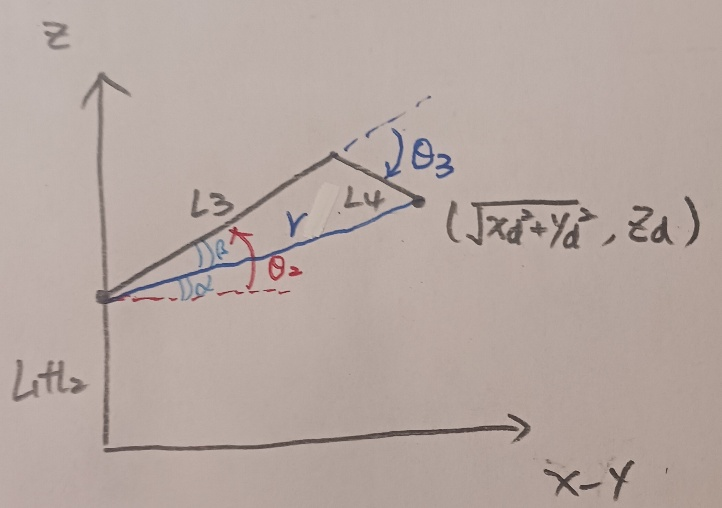 Z
θ₃
L3
L4
r
(√xd²+yd², Zd)
β
θ₂
α
L1+L2
X-Y